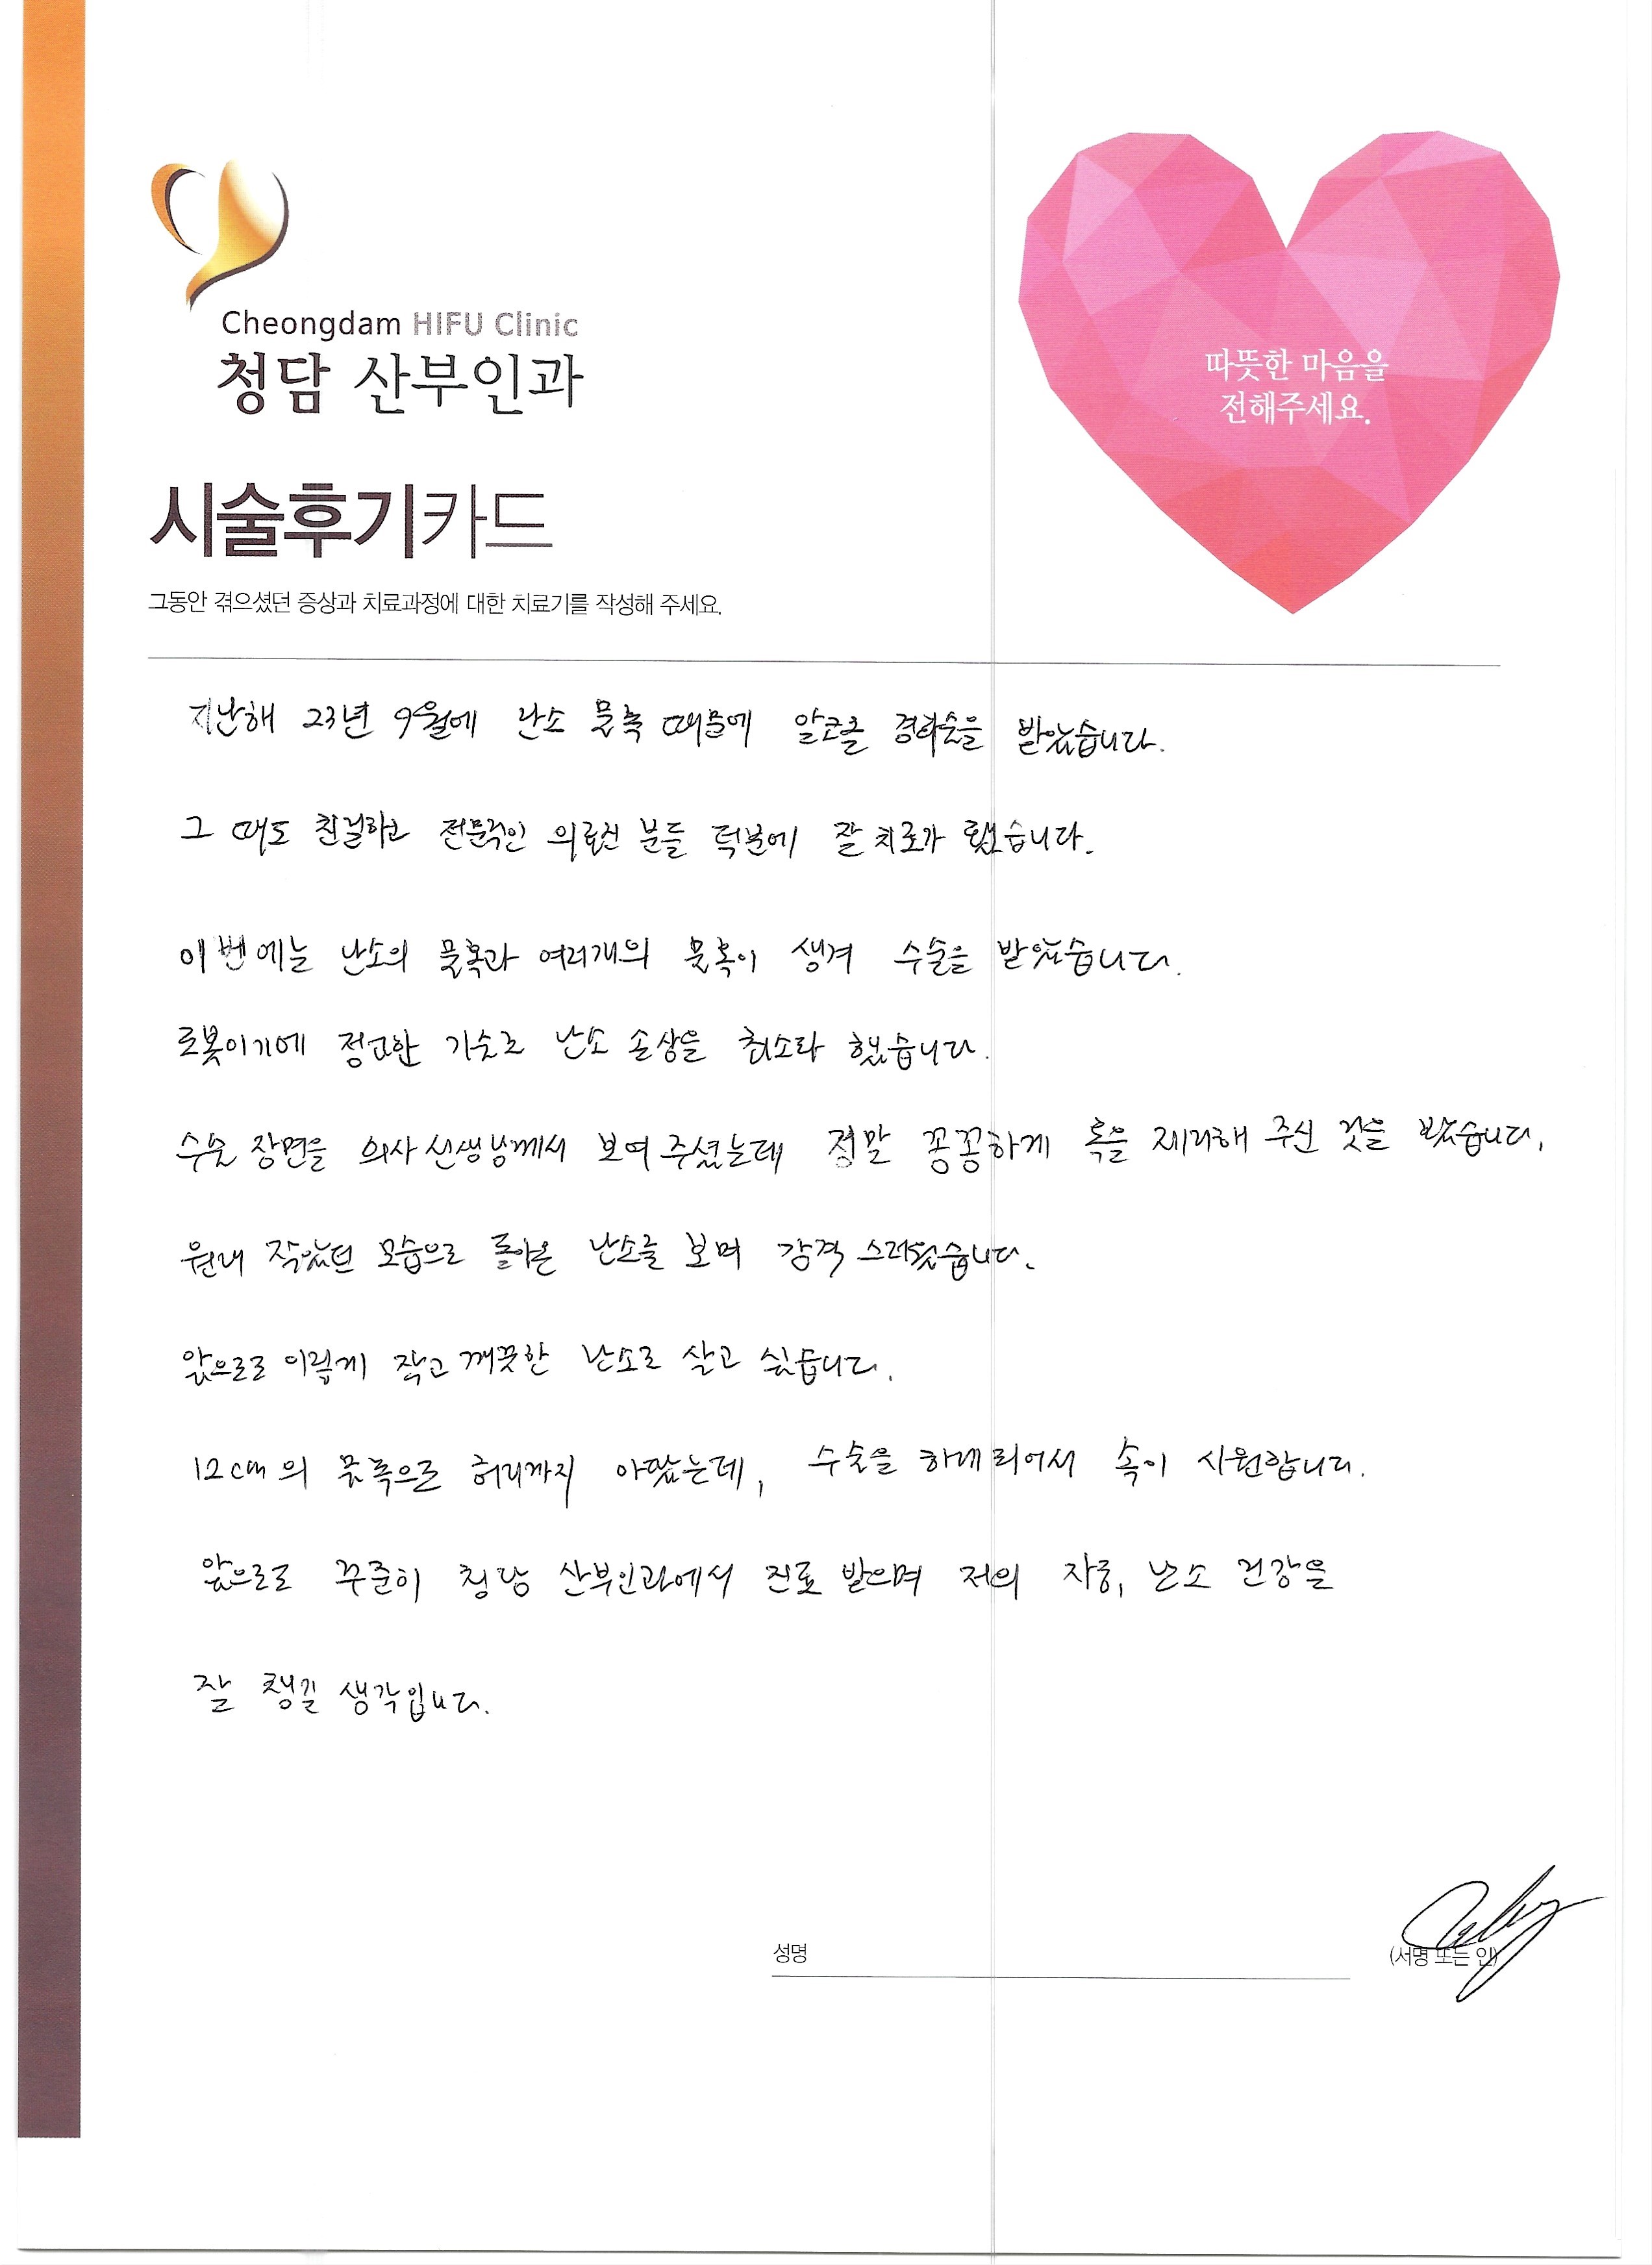 Cheongdam HIFU Clinic
청담 산부인과
따뜻한 마음을
전해주세요.
시술후기카드
그동안 겪으셨던 증상과 치료과정에 대한 치료기를 작성해 주세요.
지난해 23년 9월에 난소 물혹 때문에 알코올 경화술을 받았습니다.
그 때도 친절하고 전문적인 의료진 분들 덕분에 잘 치료가 됐습니다.
이번에는 난소의 물혹과 여러개의 물혹이 생겨 수술을 받았습니다.
로봇이기에 정교한 기술로 난소 손상을 최소화 했습니다.
수술 장면을 의사 선생님께서 보여 주셨는데 정말 꼼꼼하게 혹을 제거해 주신 것을 봤습니다.
원래 작았던 모습으로 돌아온 난소를 보며 감격 스러웠습니다.
앞으로도 이렇게 작고 깨끗한 난소로 살고 싶습니다.
12cm의 물혹으로 허리까지 아팠는데, 수술을 하게 되어서 속이 시원합니다.
앞으로도 꾸준히 청담 산부인과에서 진료 받으며 저의 자궁, 난소 건강을
잘 챙길 생각입니다.
성명
(서명 또는 인)